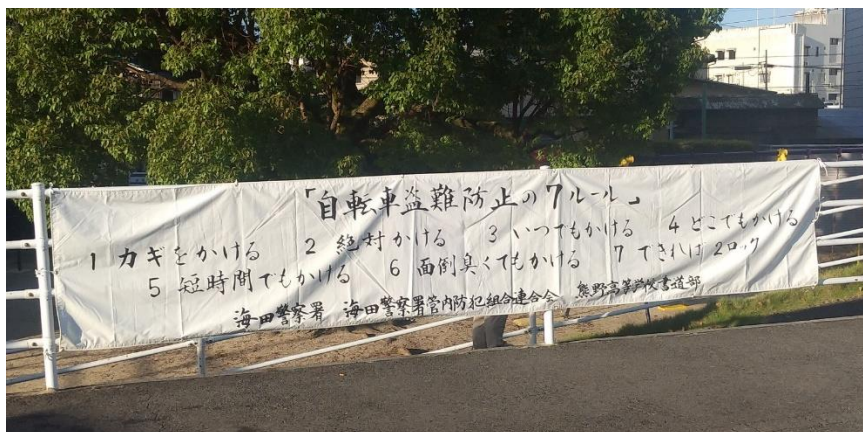 「自転車盗難防止の7ルール」
1 カギをかける 2 絶対かける 3 いつでもかける 4 どこでもかける
5 短時間でもかける 6 面倒臭くてもかける 7 できれば 2ロック
海田警察署 海田警察署管内防犯組合連合会 熊野高等学校書道部